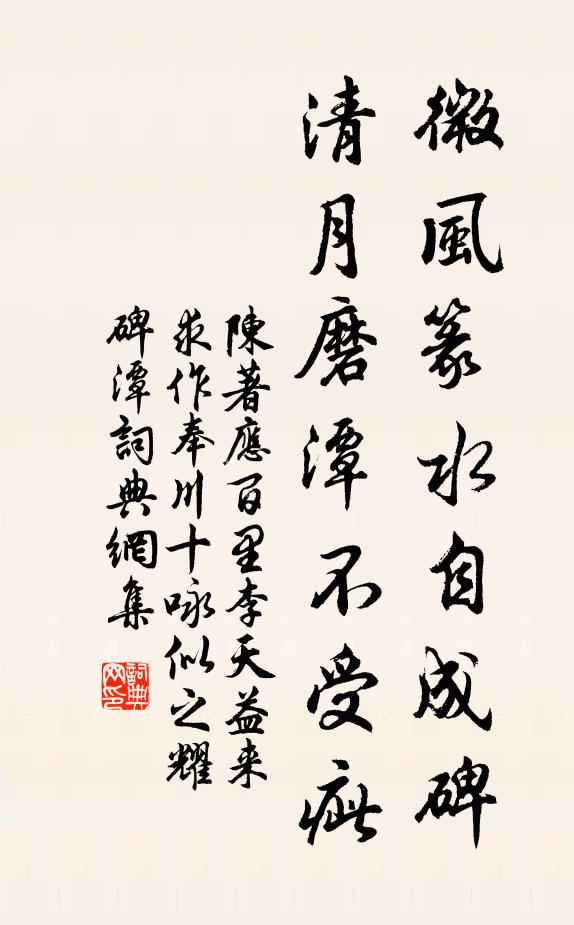 微風篆水自成碑
清月磨潭不受疵
陳著應百里李天益来
求作奉川十咏似之耀
碑潭詞典網集
詞典网印